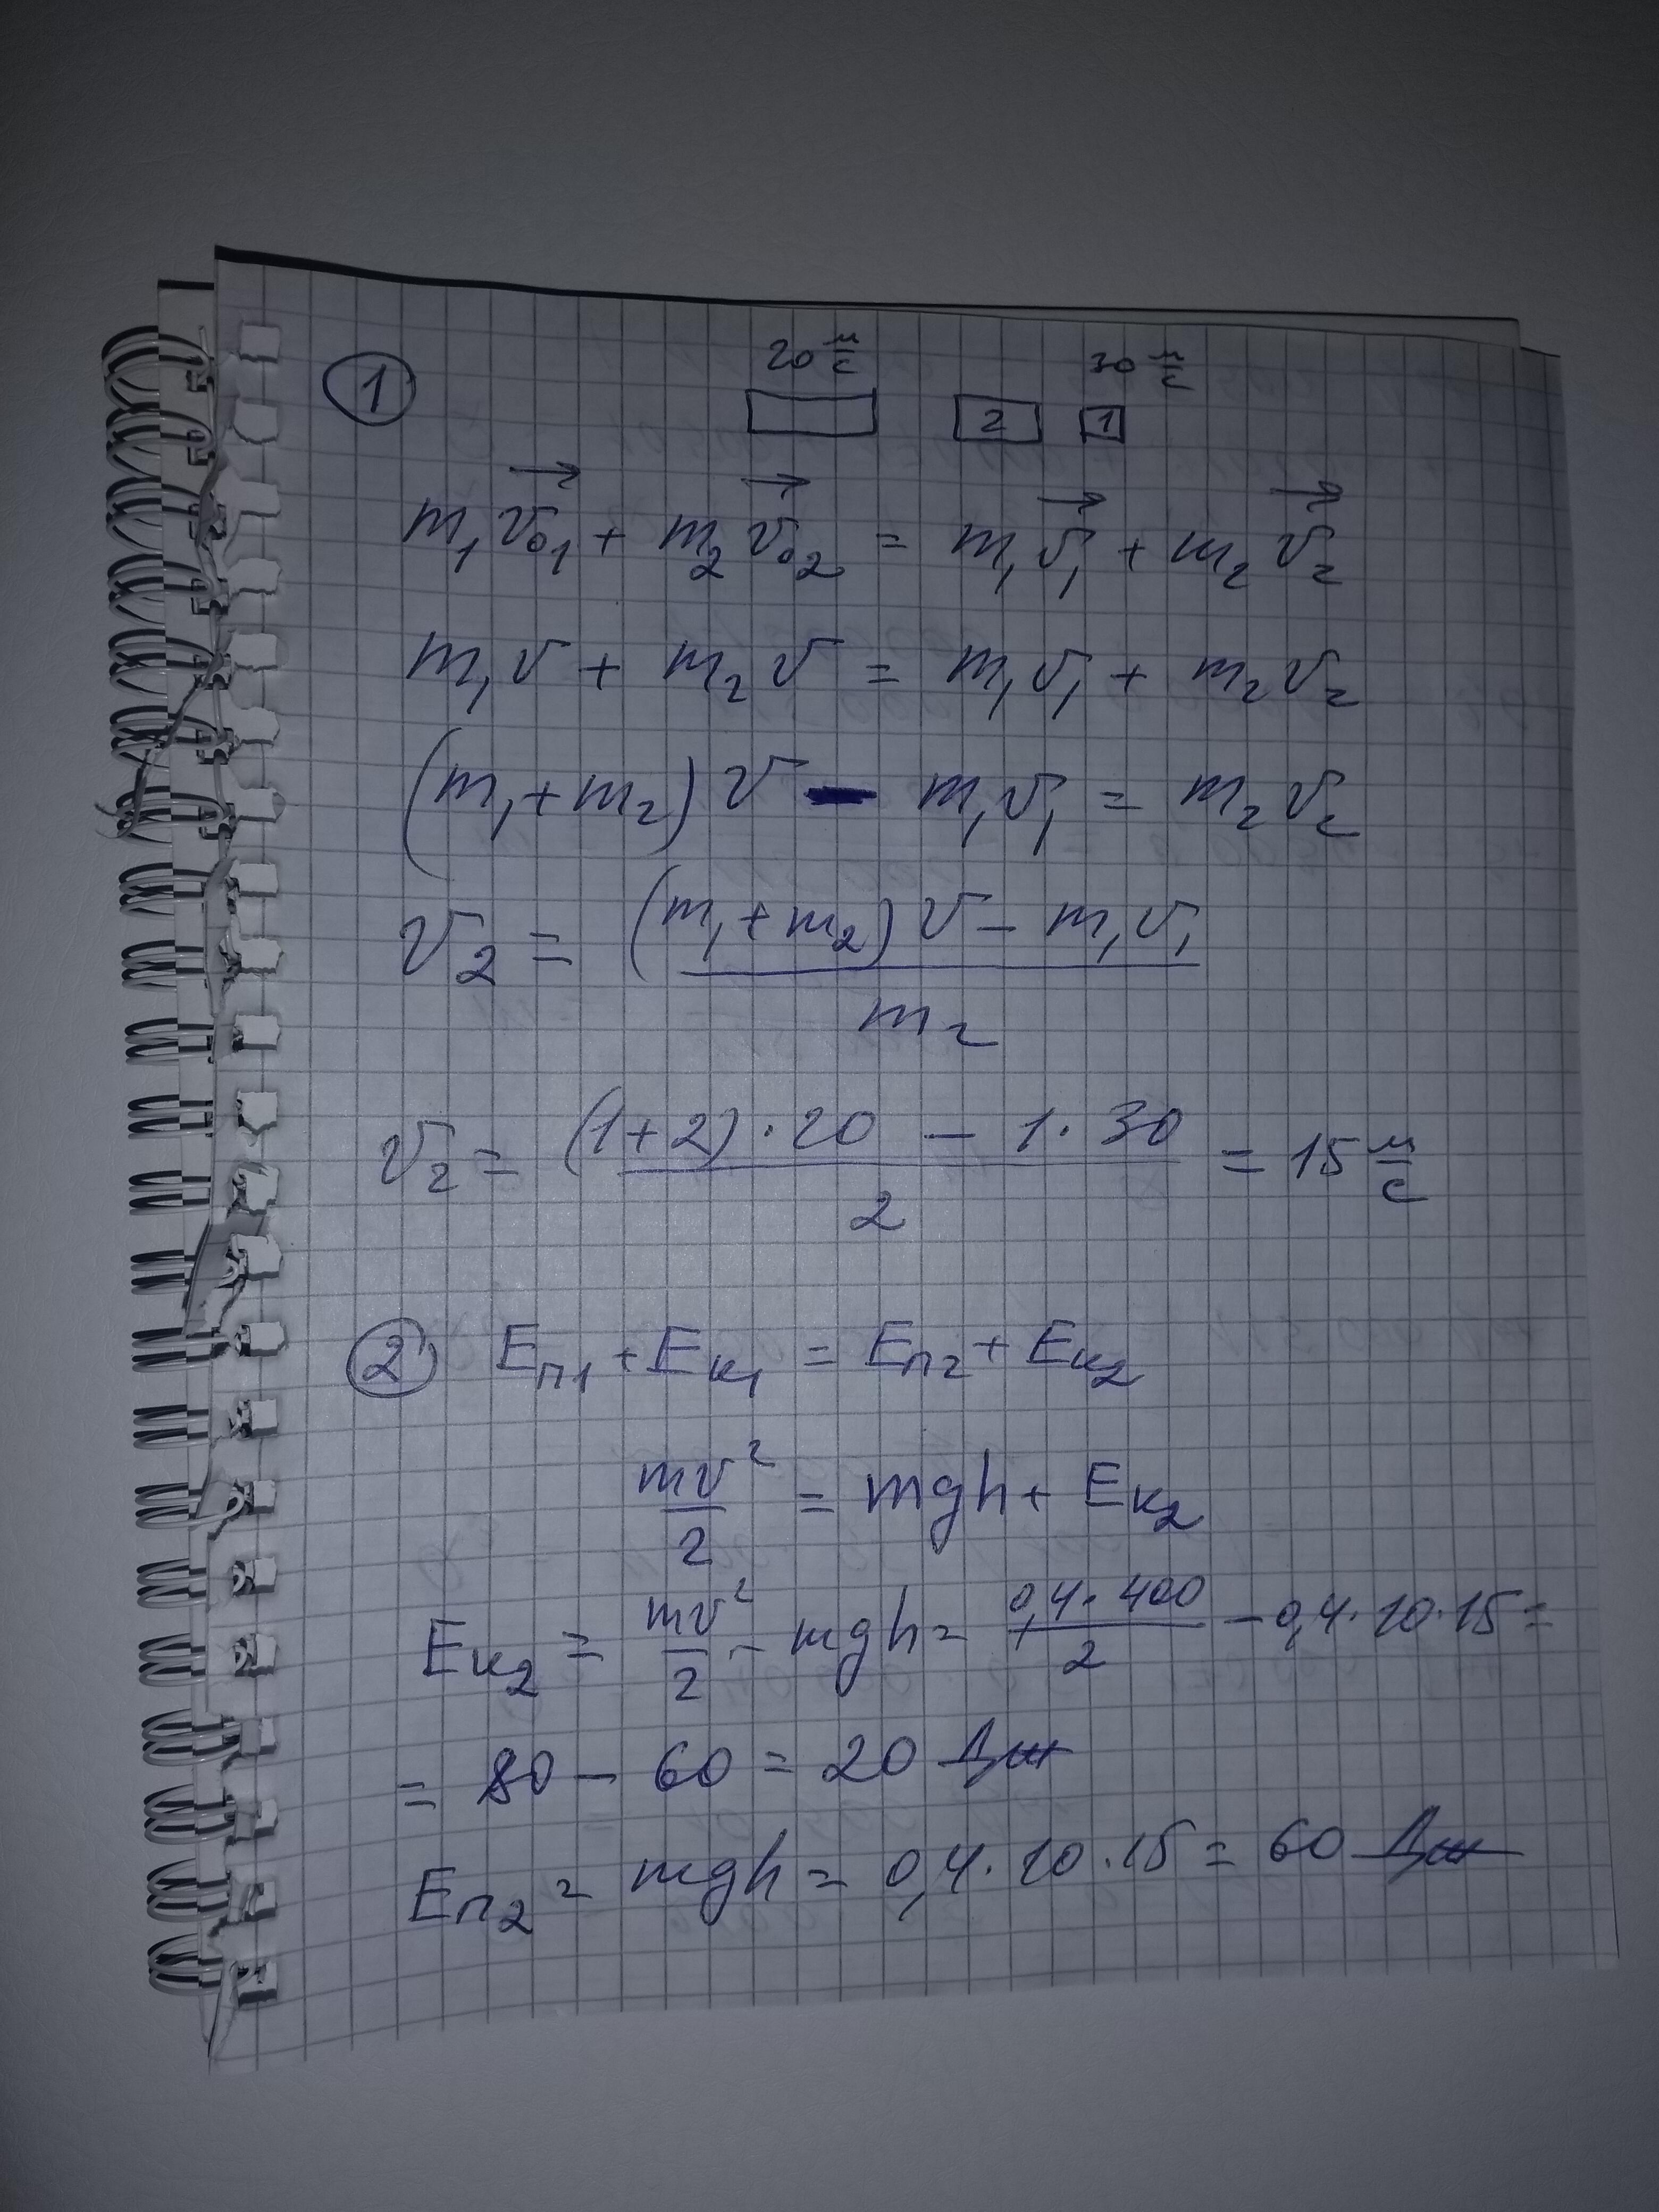 1 20 м/с 30 м/с
2 1
m₁v₀₁ + m₂v₀₂ = m₁v₁ + m₂v₂
m₁v + m₂v = m₁v₁ + m₂v₂
(m₁+m₂)v - m₁v₁ = m₂v₂
v₂ = (m₁+m₂)v - m₁v₁
m₂
v₂ = (1+2)·20 - 1·30 = 15 м/с
2
2 Eп₁ + Eк₁ = Eп₂ + Eк₂
mv²/2 = mgh + Eк₂
Eк₂ = mv²/2 - mgh = 0,4·400/2 - 0,4·10·15 =
= 80 - 60 = 20 Дж
Eп₂ = mgh = 0,4·10·15 = 60 Дж